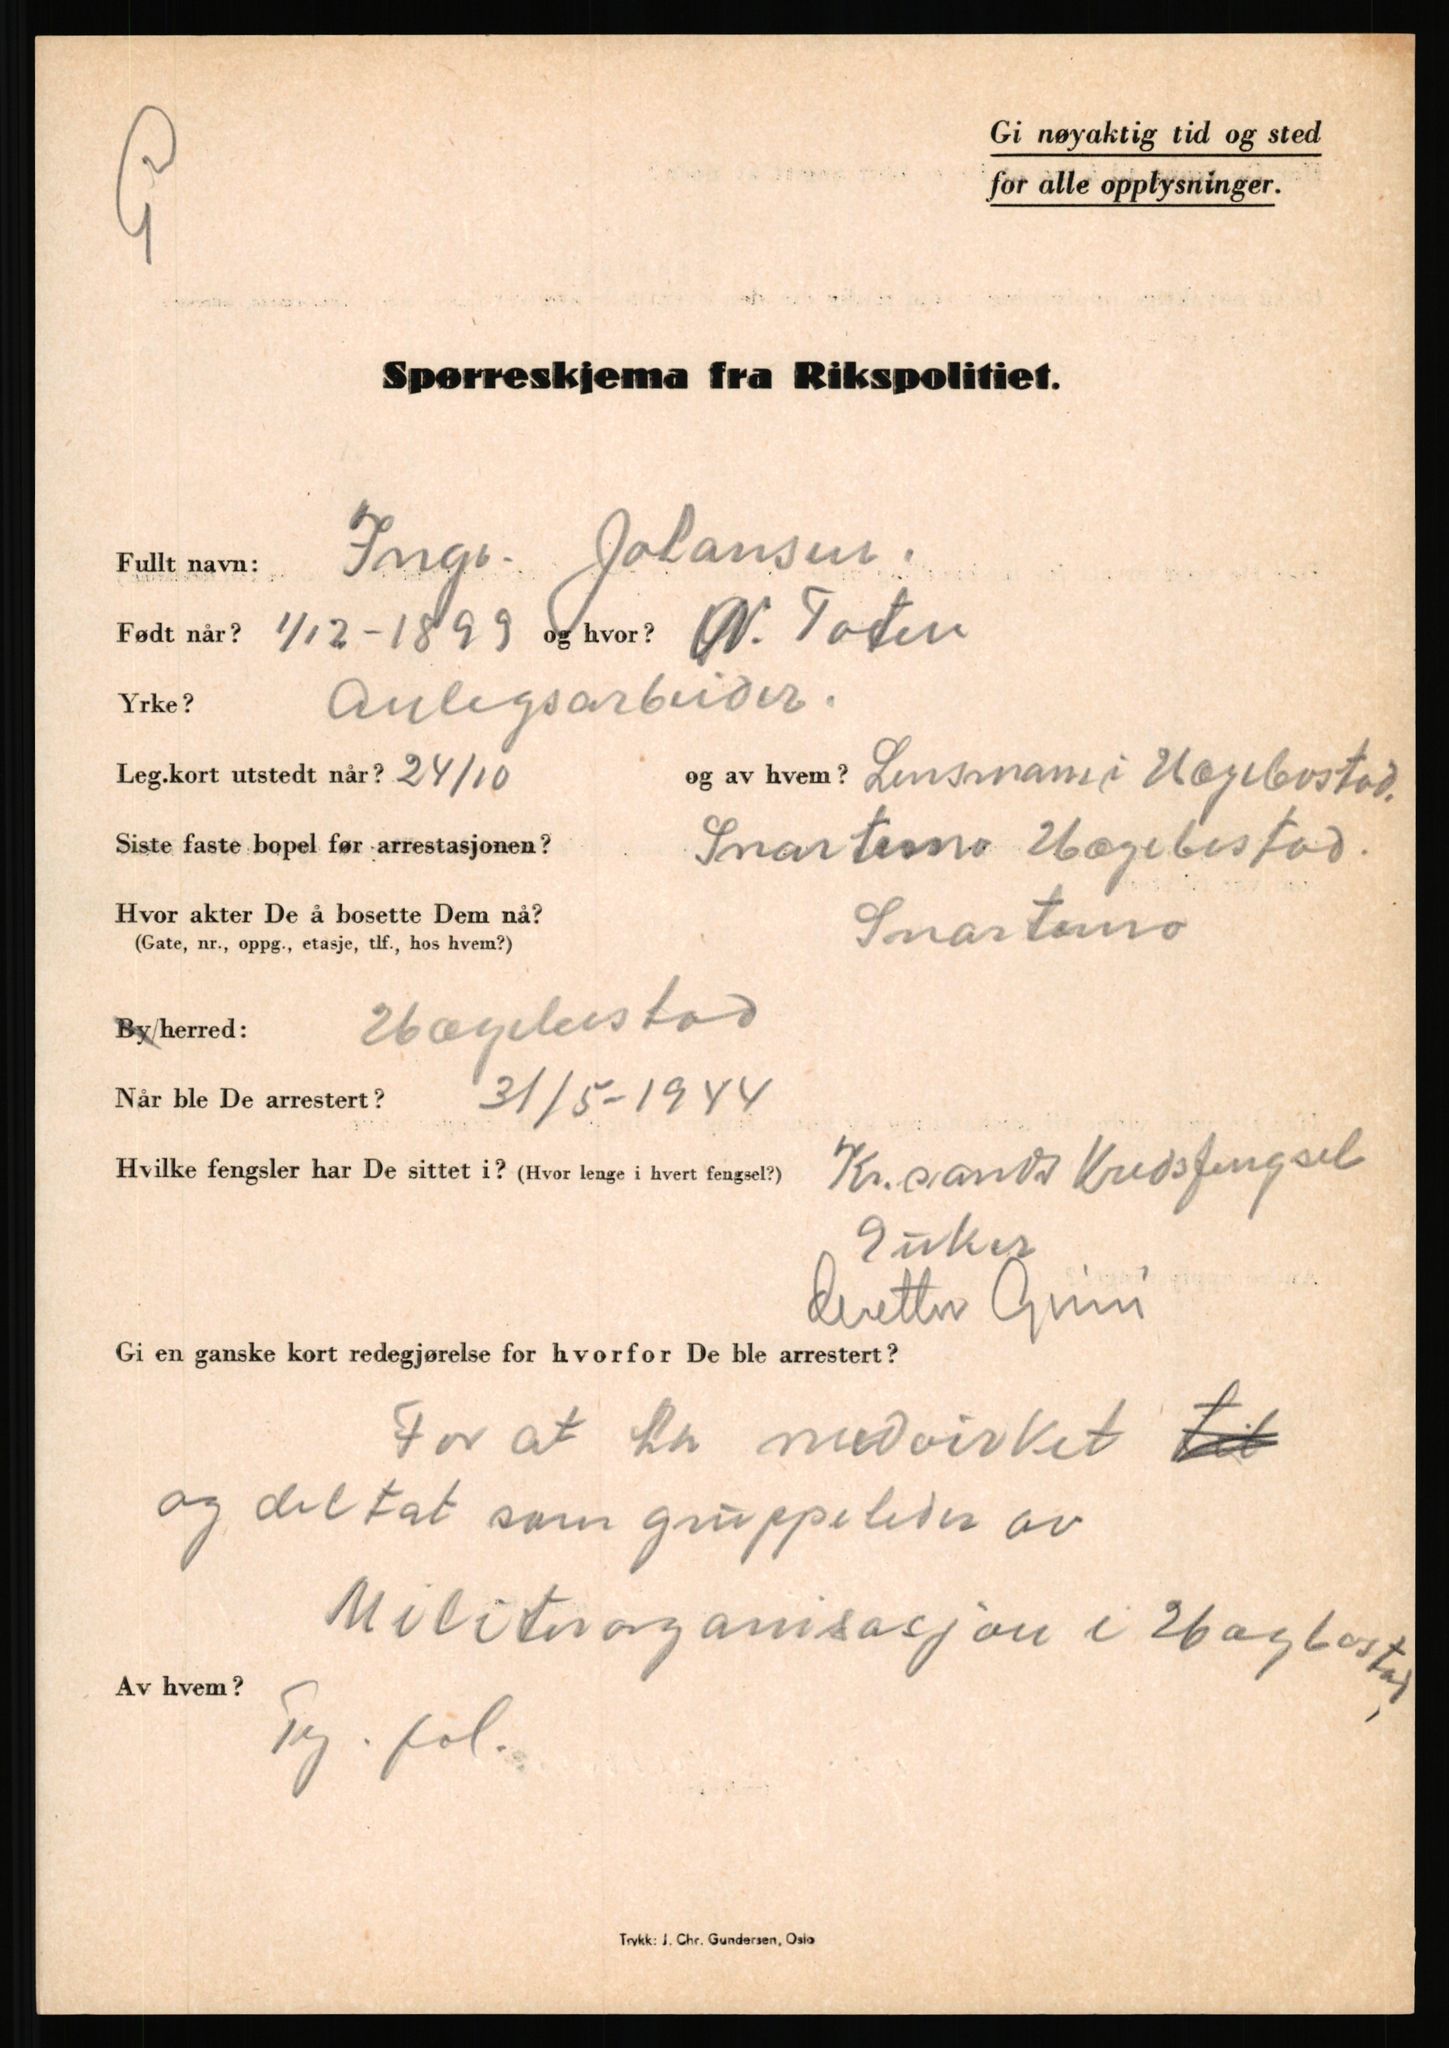 Gi nøyaktig tid og sted
for alle opplysninger.
Spørreskjema fra Rikspolitiet.
Fullt navn: Inge. Johansen.
Født når? 1/12-1899 og hvor? V. Toten
Yrke? Anlegsarbeider.
Leg.kort utstedt når? 24/10 og av hvem? Lensmann i Hægebostad.
Siste faste bopel før arrestasjonen? Snartemo Hægebostad.
Hvor akter De å bosette Dem nå? Snartemo
(Gate, nr., oppg., etasje, tlf., hos hvem?)
By/herred: Hægebostad
Når ble De arrestert? 31/5-1944
Hvilke fengsler har De sittet i? (Hvor lenge i hvert fengsel?) Kr.sands Kredsfengsel
9 uker
deretter Grini
Gi en ganske kort redegjørelse for hvorfor De ble arrestert?
For at ha medvirket til
og deltat som gruppeleder av
Militerorganisasjon i Hægbostad,
Av hvem? Ty. pol.
Trykk: J. Chr. Gundersen, Oslo